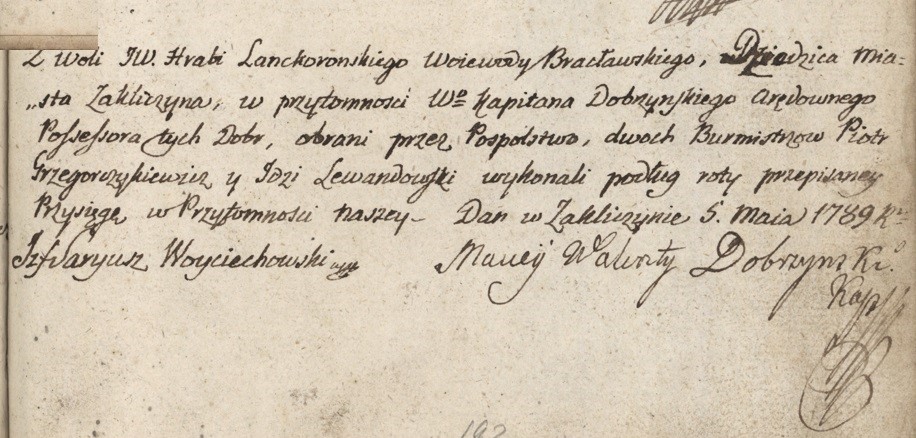 Z Woli JW. Hrabi Lanckoronskiego Woiewody Bracławskiego, Dziedzica Mia=
„sta Zakliczyna, w przytomności Wo Kapitana Dobrzyńskiego Arędownego
Possessora tych Dobr, obrani przez Pospolstwo, dwoch Burmistrzow Piotr
Grzegorczykiewicz y Idzi Lewandowski wykonali podług roty przepisaney
Przysięgę w Przytomności naszey– Dan w Zakliczynie 5. Maia 1789 R
Woyciechowski
Maciey Dobrzynski.
Kap
192